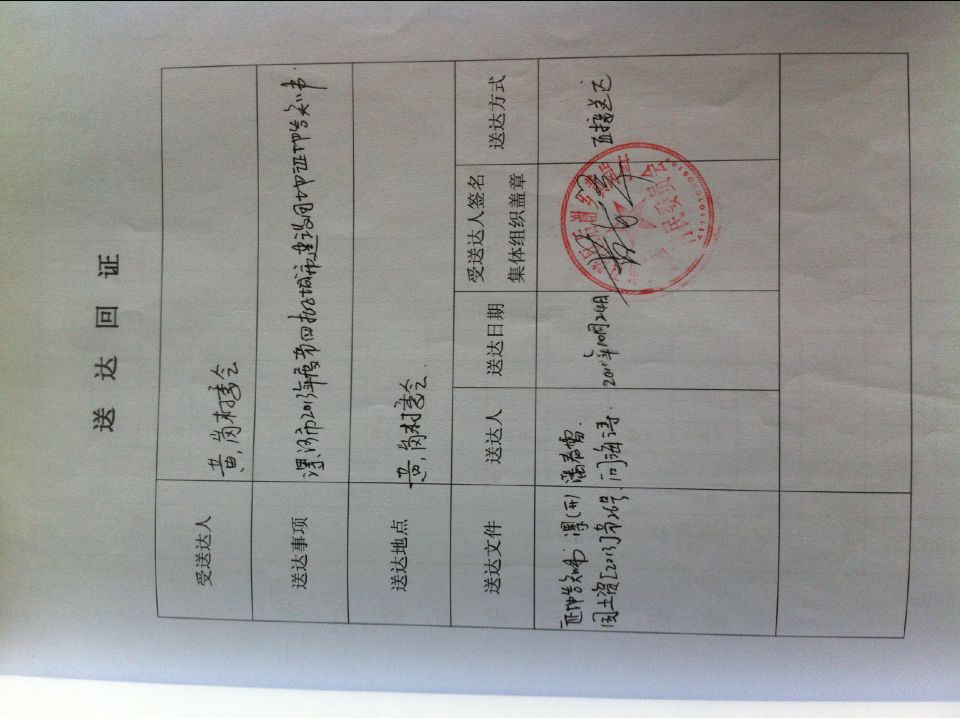 送达回证
受送达人 黄岗村委会
送达事项 漯河市2013年度第四批城市建设用地征地告知书.
送达地点 黄岗村委会.
送达文件 送达人 送达日期 受送达人签名 送达方式
集体组织盖章
征地告知书 漯(开) 潘春雷. 直接送达
国土资[2013]第26号. 闫海涛. 10月24日